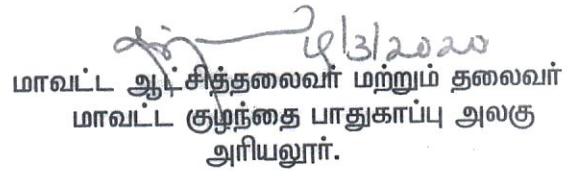 மாவட்ட ஆட்சித்தலைவர் மற்றும் தலைவர்
மாவட்ட குழந்தை பாதுகாப்பு அலகு
அரியலூர்.